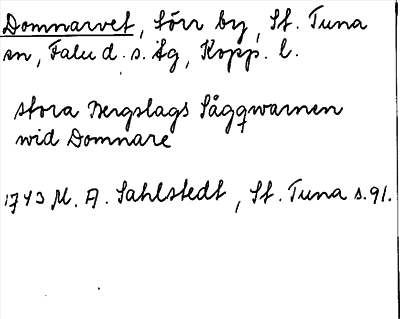 Domnarvet, Törr by, St. Tuna
sn, Falu d. s. lg, Kopp. l.
stora Bergslags Sågqwarnen
wid Domnare
1743 M. A. Sahlstedt, St. Tuna s. 91.